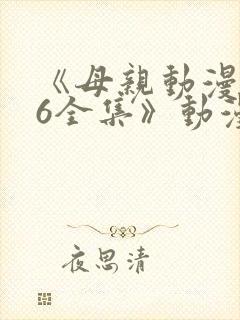 《母親動漫
6全集》動漫
夜思清